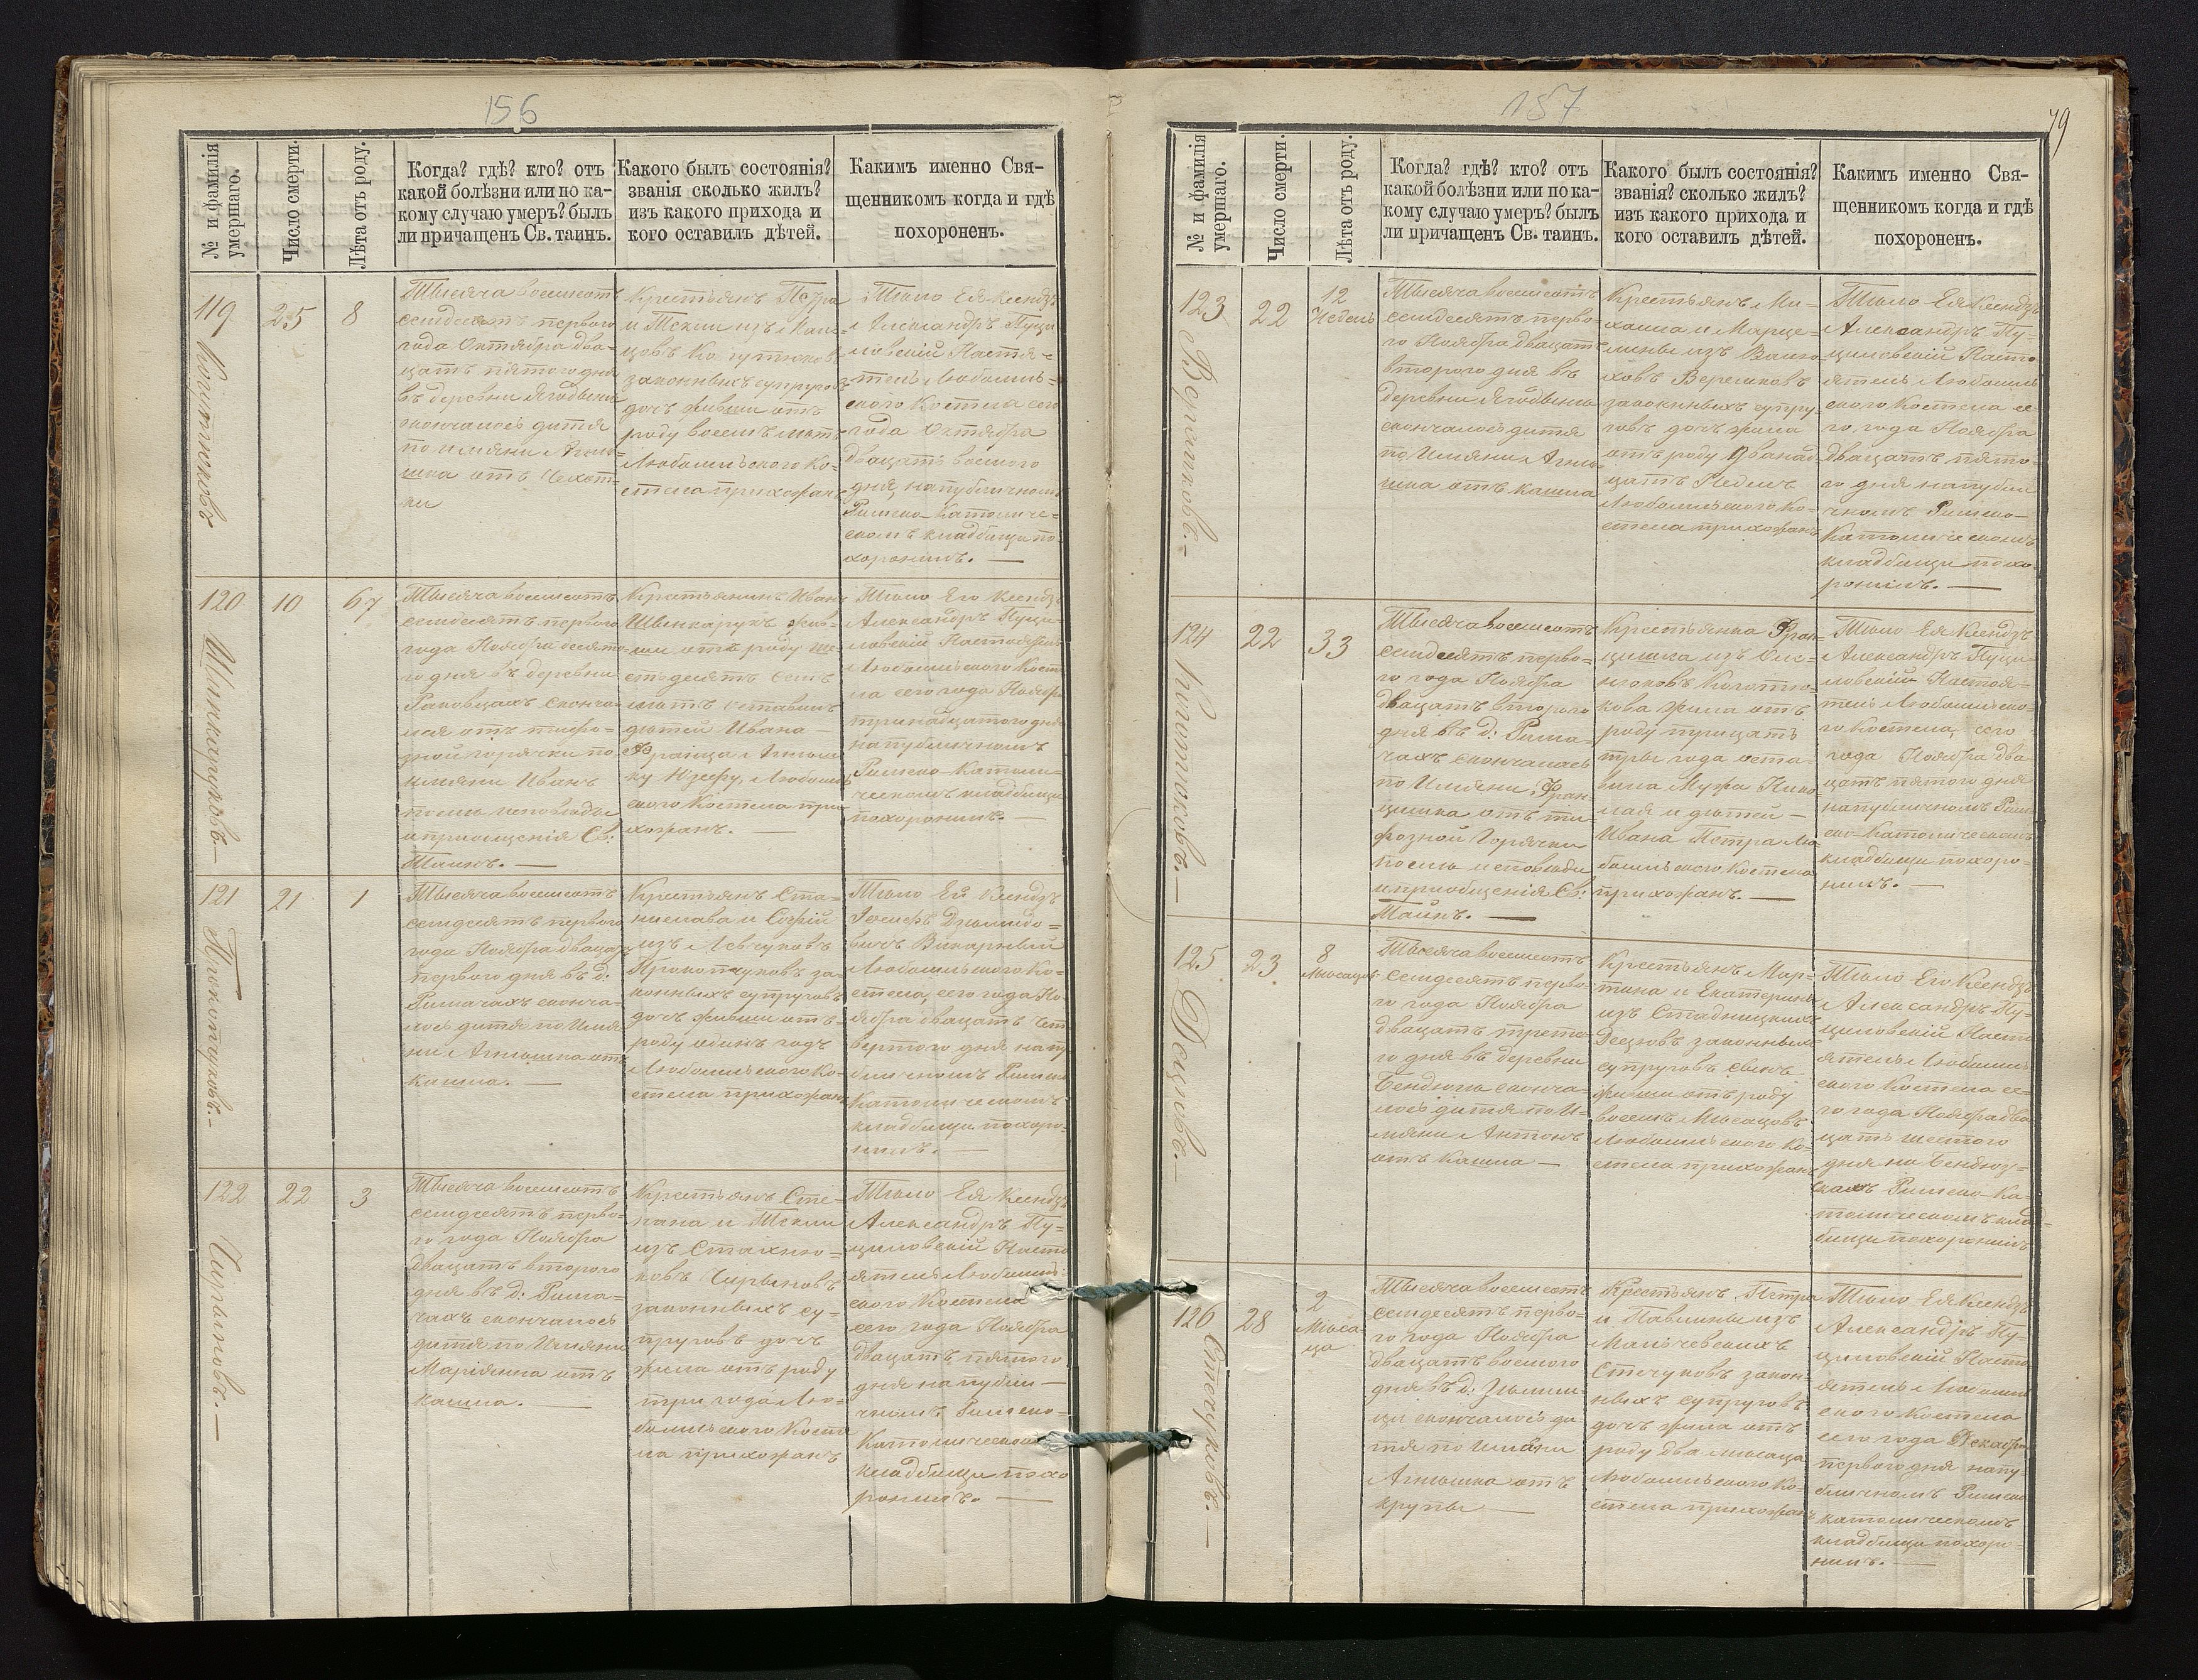 156
№ и фамилія умершаго.
Число смерти.
Лѣта отъ роду.
Когда? гдѣ? кто? отъ
какой болѣзни или по ка-
кому случаю умеръ? былъ
ли причащенъ Св. таинъ.
Какого былъ состоянія?
званія сколько жилъ?
изъ какого прихода и
кого оставилъ дѣтей.
Какимъ именно Свя-
щенникомъ когда и гдѣ
похороненъ.
119
25
8
Тысяча восемсотъ
семдесятъ первого
года Октября два-
цать пятого дня
въ деревни
скончалось дитя
по имяни
отъ
Крестьянъ Петра
и Текли изъ
законныхъ супруговъ
дочъ живши отъ
роду восемъ лѣтъ
Любомльского Ко-
стела прихожан
Тѣло Ея Ксендзъ
Александръ
Настоя-
тель Любомль-
ского Костела сего
года Октября
двацать восмого
дня, на публичномъ
Римско-Католиче-
скомъ кладбищи по-
хоронилъ. —
120
10
67
Шлинкаруковъ. —
Тысяча восемсотъ
семдесятъ первого
года Ноября десято-
го дня въ деревни
сконча-
лся отъ тифо-
зной горячки по
имяни Иванъ
послѣ исповѣди
и приобщенія Св:
Таинъ. —
Крестьянинъ Иванъ
жив-
ши отъ роду ше-
стдесятъ семъ
лѣтъ оставилъ
дѣтей Ивана
Франца
Юзефу, Любомль
ского Костела при
хожанъ. —
Тѣло Его Ксендзъ
Александръ
Настоятель
Любомльского Косте
ла сего года Ноября
тринадцатого дня
на публичномъ
Римско-Католи-
ческомъ кладбищи
похоронилъ. —
121
21
1
Прокопчуковъ. —
Тысяча восемсотъ
семдесятъ первого
года Ноября двацать
первого дня въ д:
Римачахъ сконча-
лось дитя по Имя
ни отъ
кашла. —
Крестьянъ Ста-
нислава и Софіи
изъ Левчуковъ
Прокопчуковъ за-
конныхъ супруговъ
дочъ живши отъ
роду одинъ годъ
Любомльского Ко-
стела прихожан
Тѣло Ей Ксендзъ
Викарный
Любомльского Ко-
стела, сего года Но
ября двацать чет
вертого дня на пу
бличномъ Римско
Католическомъ
кладбищи похоро-
нилъ. —
122
22
3
Тысяча восемсотъ
семдесятъ перво-
го года Ноября
двацать второго
дня въ д: Рима-
чахъ скончалось
дитя по Имяни
Маріянна отъ
кашла. —
Крестьянъ Сте-
пана и Текли
изъ Стахню-
ковъ
законныхъ су-
пруговъ дочъ
жила отъ роду
три года Лю-
бомльского Косте
ла прихожанъ
Тѣло Ея Ксендзъ
Александръ
Насто
ятель Любомль-
ского Костела
сего года Ноября
двацать пятого
дня на публи-
чномъ Римско-
Католическомъ
кладбищи похо
ронилъ. —
157
79
№ и фамилія умершаго.
Число смерти.
Лѣта отъ роду.
Когда? гдѣ? кто? отъ
какой болѣзни или по ка-
кому случаю умеръ? былъ
ли причащенъ Св. таинъ.
Какого былъ состоянія?
званія? сколько жилъ?
изъ какого прихода и
кого оставилъ дѣтей.
Какимъ именно Свя-
щенникомъ когда и гдѣ
похороненъ.
123
22
12
Недель
Тысяча восемсотъ
семдесятъ перво-
го Ноября двацать
второго дня въ
деревни
скончалось дитя
по Имяни
отъ кашла
Крестьянъ Ми-
хаила и Марце-
лины изъ
законныхъ супру
говъ дочъ жила
отъ роду Двенад-
цать Недель
Любомльского Ко-
стела прихожанъ
Тѣло Ея Ксендзъ
Александръ
Насто
ятель Любомль
ского Костела се-
го, года Ноября
двацать пято-
го дня на публи
чномъ Римско-
Католическомъ
кладбищи похо-
ронилъ. —
124
22
33
Тысяча восемсотъ
семдесятъ перво-
го года Ноября
двацать второго
дня въ д: Рима-
чахъ скончалась
по Имяни Фран-
цишка отъ ти-
фозной Горячки
послѣ исповѣди
и приобщенія Св:
Таинъ. —
Крестьянка Фран-
цишка изъ
жила отъ
роду трицать
три года оста-
вила Мужа Нико
лая и дѣтей —
Ивана Петра Лю-
бомльского Костела
прихожанъ. —
Тѣло Ея Ксендзъ
Александръ
Настоя-
тель Любомльско-
го Костела, сего
года Ноября два
цать пятого дня
на публичномъ Рим
ско-Католическомъ
кладбищи похоро-
нилъ. —
125
23
8
Мѣсацовъ
Децювъ. —
Тысяча восемсотъ
семдесятъ перво-
го года Ноября
двацать трето-
го дня въ деревни
сконча-
лось дитя по И-
мяни Антонъ
отъ Кашла —
Крестьянъ Мар-
тина и Екатерины
изъ Стадницкихъ
Децювъ законныхъ
супруговъ сынъ
живши отъ роду
восемъ Мѣсацовъ
Любомльского Ко-
стела прихожанъ
Тѣло Его Ксендзъ
Александръ
Насто
ятель Любомль
ского Костела се-
го года Ноября два
цать шестого
дня на
Римско Ка-
толическомъ клад-
бищи похоронилъ
126
28
2
Мѣса
ца
Стечуковъ. —
Тысяча восемсотъ
семдесятъ перво-
го года Ноября
двацать восмого
дня въ д:
скончалось ди
тя по Имяни
отъ
крупы —
Крестьянъ Петра
и Павлины изъ
Мальчевскихъ
Стечуковъ закон-
ныхъ супруговъ
дочъ жила отъ
роду два мѣсаца
Любомльского Ко-
стела прихожанъ
Тѣло Ея Ксендзъ
Александръ
Насто
ятель Любомль
ского Костела
сего года Декабря
первого дня на пу-
бличномъ Римско
католическомъ
кладбищи похоро-
нилъ. —